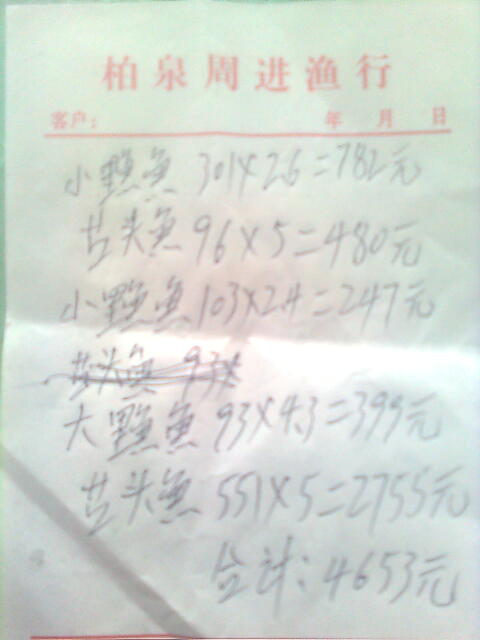 柏泉周进渔行
客户： 年 月 日
小 鱼 301×2.6=782元
头鱼 96×5=480元
小 鱼 103×2.4=247元
头鱼 93×
大 鱼 93×4.3=399元
头鱼 551×5=2755元
合计：4653元